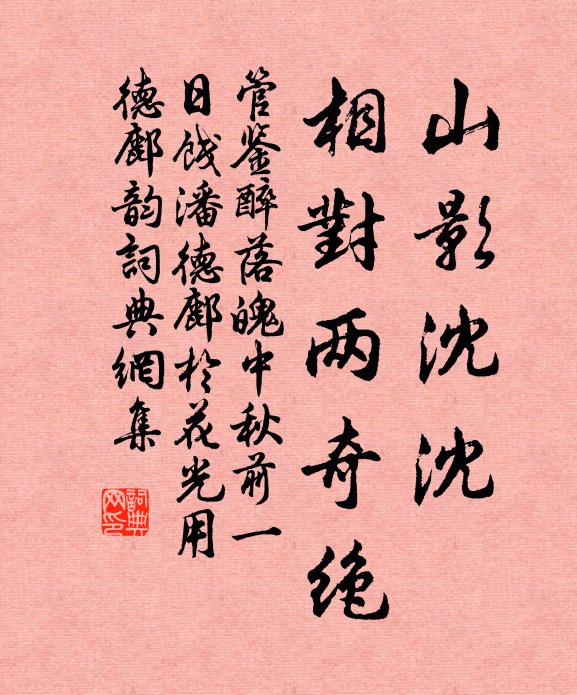 山影沈沈
相對两奇绝
管鉴醉落魄中秋前一
日饯潘德鄜於花光用
德鄜韵詞典網集
詞典
网印